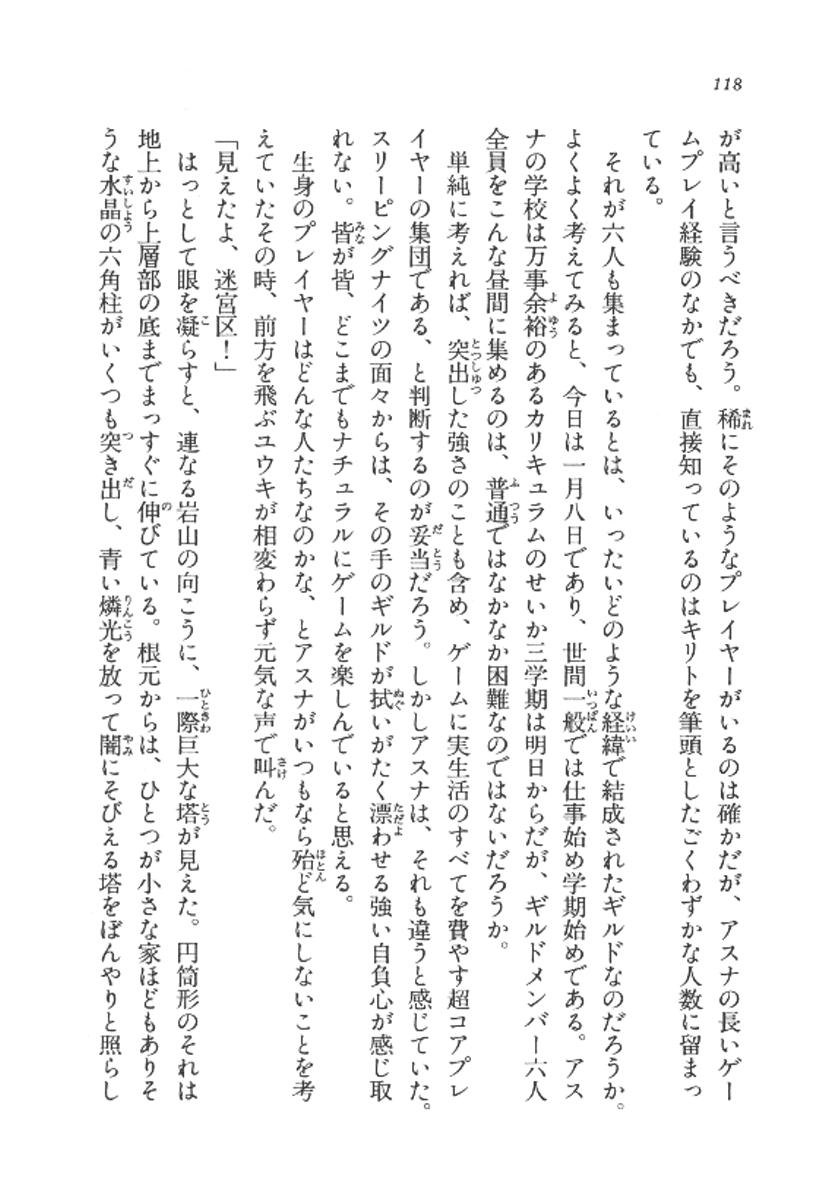 118
が高いと言うべきだろう。稀にそのようなプレイヤーがいるのは確かだが、アスナの長いゲー
ムプレイ経験のなかでも、直接知っているのはキリトを筆頭としたごくわずかな人数に留まっ
ている。
それが六人も集まっているとは、いったいどのような経緯で結成されたギルドなのだろうか。
よくよく考えてみると、今日は一月八日であり、世間一般では仕事始め学期始めである。アス
ナの学校は万事余裕のあるカリキュラムのせいか三学期は明日からだが、ギルドメンバー六人
全員をこんな昼間に集めるのは、普通ではなかなか困難なのではないだろうか。
単純に考えれば、突出した強さのことも含め、ゲームに実生活のすべてを費やす超コアプレ
イヤーの集団である、と判断するのが妥当だろう。しかしアスナは、それも違うと感じていた。
スリーピングナイツの面々からは、その手のギルドが拭いがたく漂わせる強い自負心が感じ取
れない。皆が皆、どこまでもナチュラルにゲームを楽しんでいると思える。
生身のプレイヤーはどんな人たちなのかな、とアスナがいつもなら殆ど気にしないことを考
えていたその時、前方を飛ぶユウキが相変わらず元気な声で叫んだ。
「見えたよ、迷宮区！」
はっとして眼を凝らすと、連なる岩山の向こうに、一際巨大な塔が見えた。円筒形のそれは
地上から上層部の底までまっすぐに伸びている。根元からは、ひとつが小さな家ほどもありそ
うな水晶の六角柱がいくつも突き出し、青い燐光を放って闇にそびえる塔をぼんやりと照らし